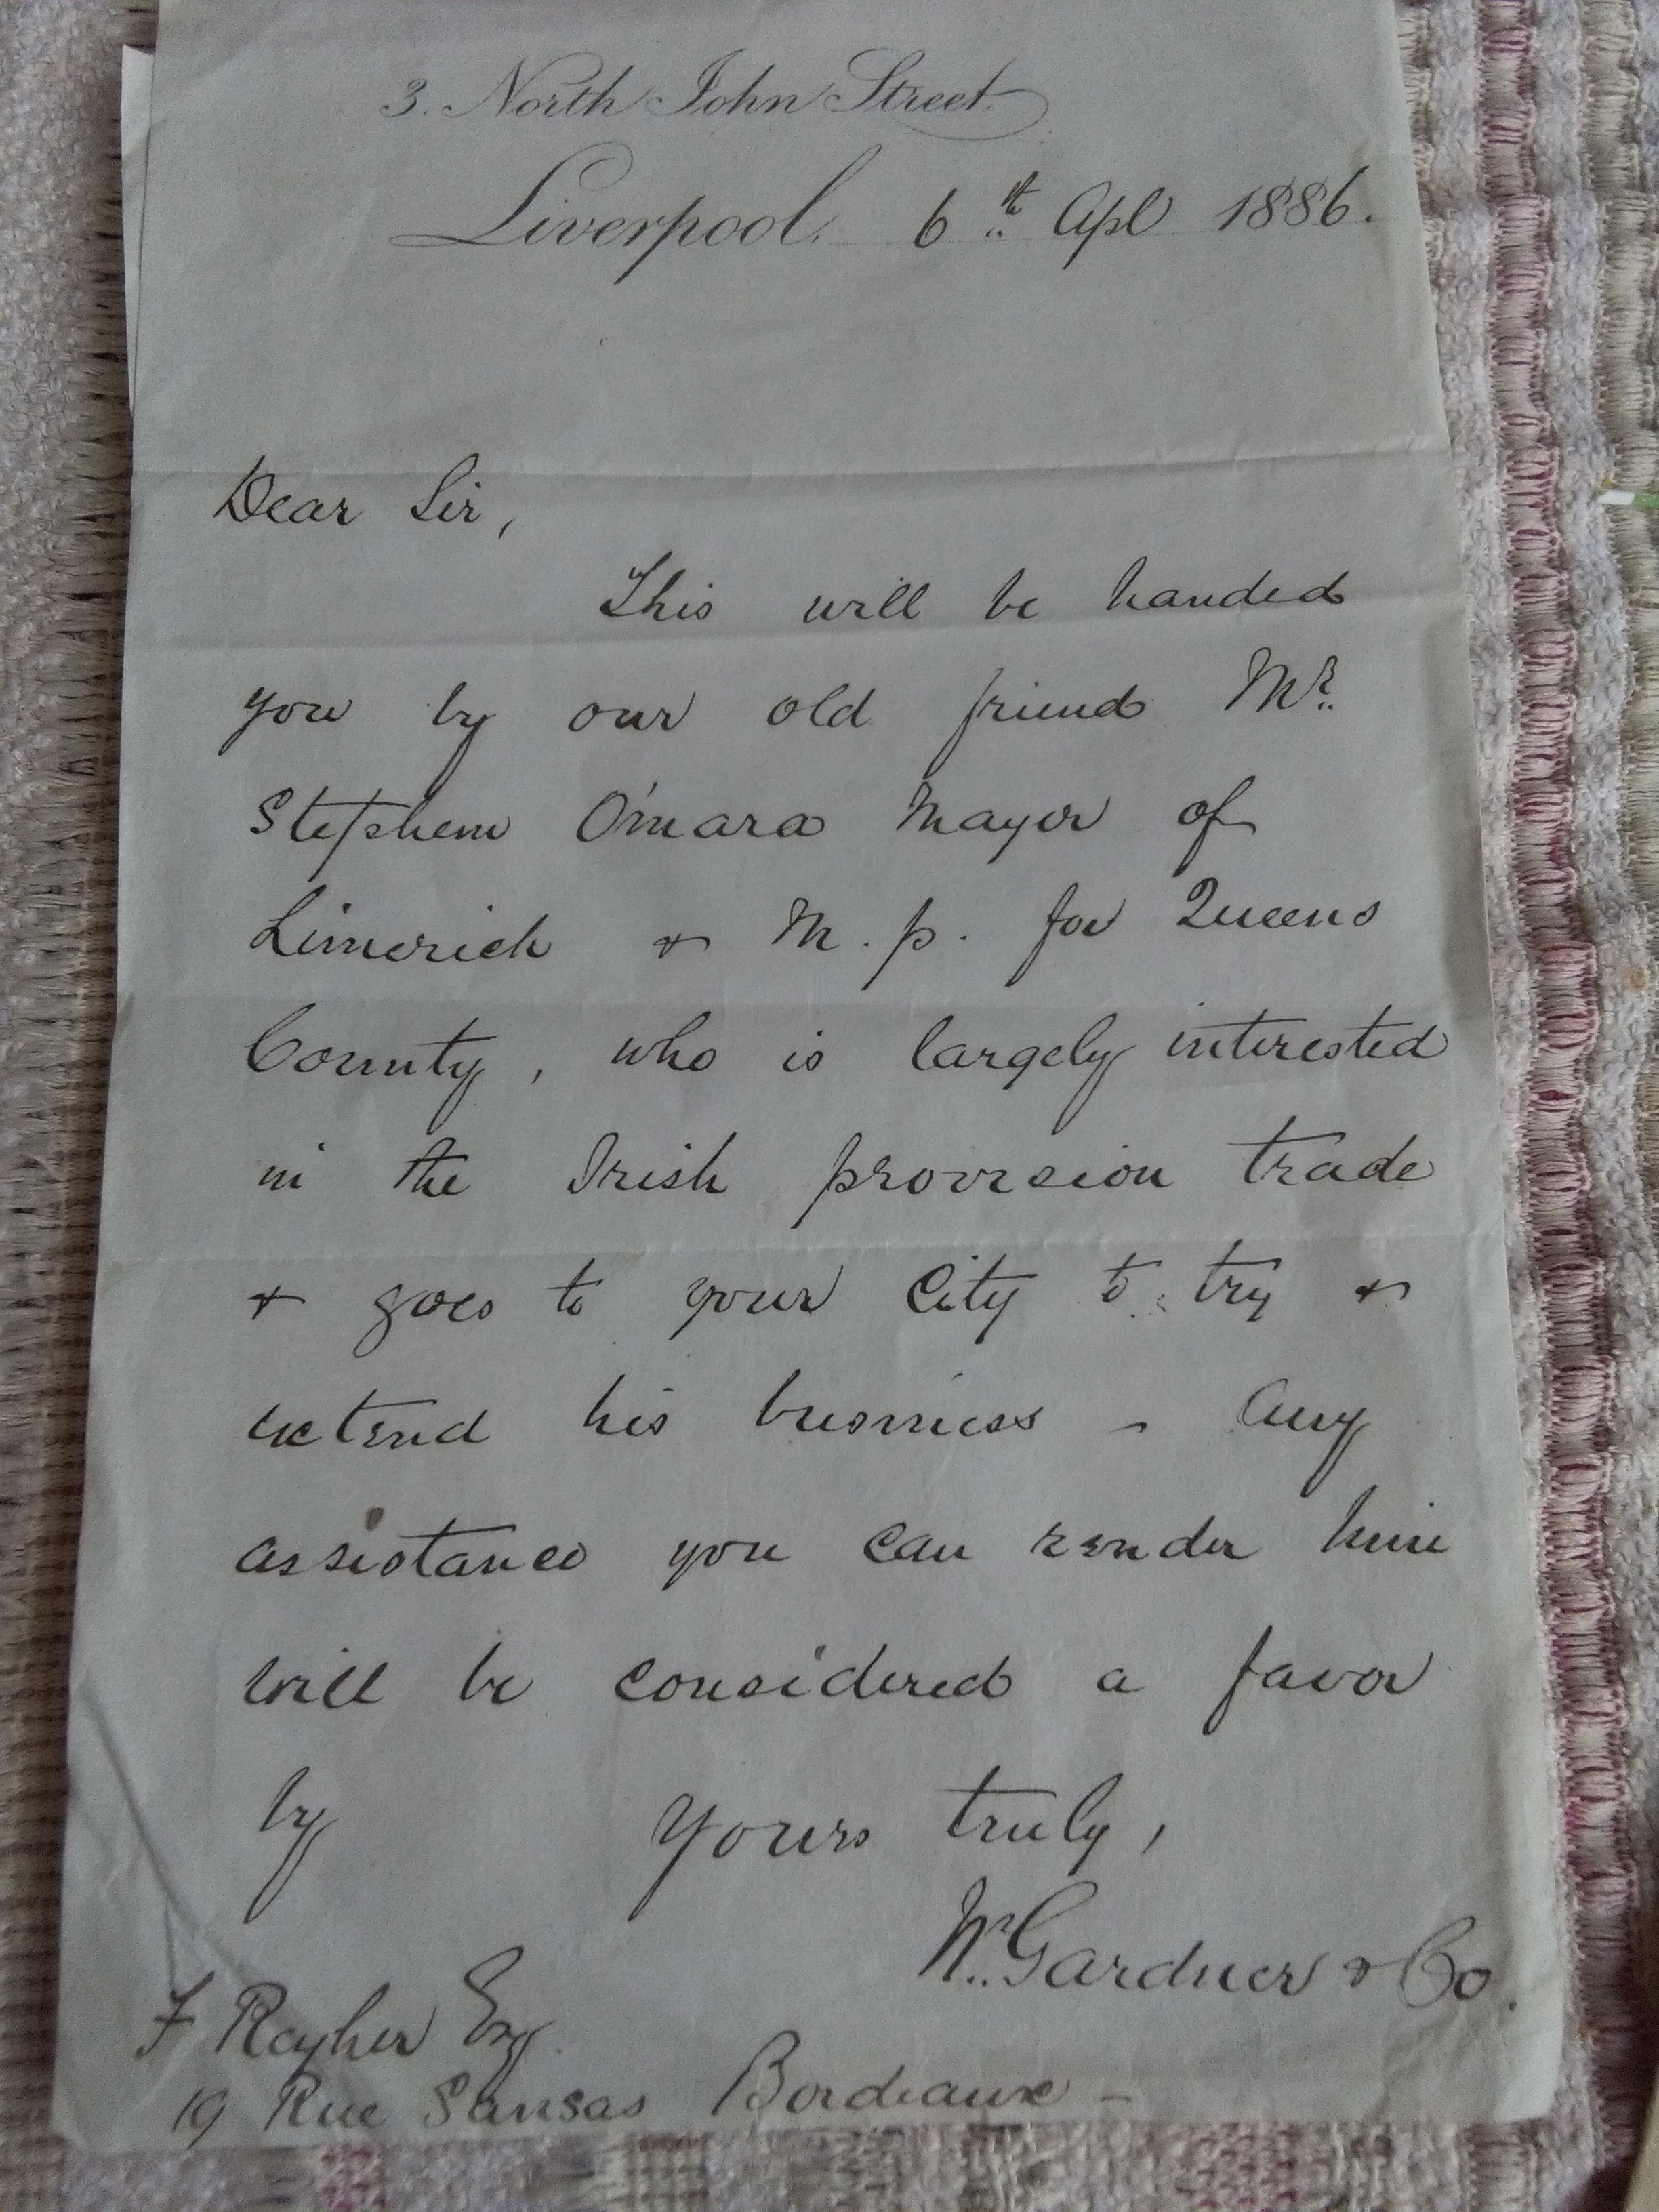 3. North John Street.
Liverpool. 6th Apl 1886.
Dear Sir,
This will be handed
you by our old friend Mr.
Stephen O'Mara Mayor of
Limerick & M.p. for Queens
County, who is largely interested
in the Irish provision trade
& goes to your City to try &
extend his business - Any
assistance you can render him
will be considered a favor
by Yours truly,
Wm. Gardner & Co.
F Rayher Esq
19 Rue Sansas Bordeaux -